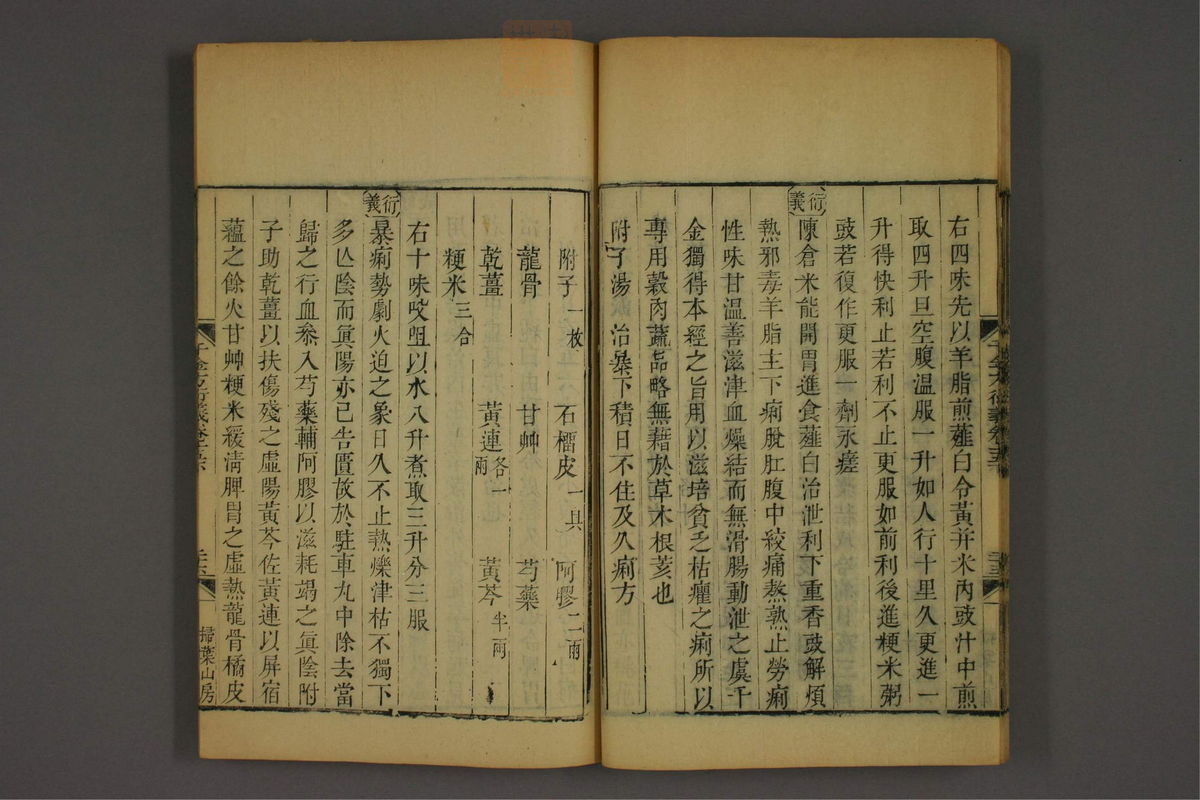 右四味先以羊脂煎薤白令黃并米內豉汁中煎
取四升旦空腹溫服一升如人行十里久更進一
升得快利止若利不止更服如前利後進粳米粥
豉若復作更服一劑永瘥
衍義
陳倉米能開胃進食薤白治泄利下重香豉解煩
熱邪毒羊脂主下痢脫肛腹中絞痛熬熟止勞痢
性味甘溫善滋津血燥結而無滑腸動泄之虞千
金獨得本經之旨用以滋培貧乏枯癯之痢所以
專用穀肉蔬品略無藉於草木根荄也
附子湯 治暴下積日不住及久痢方
附子一枚 石橊皮一具 阿膠二兩
龍骨 甘艸 芍藥
乾薑 黃連各一兩 黃芩半兩
粳米三合
右十味㕮咀以水八升煮取三升分三服
衍義
暴痢勢劇火迫之象日久不止熱爍津枯不獨下
多亾陰而眞陽亦已告匱故於駐車丸中除去當
歸之行血叅入芍藥輔阿膠以滋耗竭之眞陰附
子助乾薑以扶傷殘之虛陽黃芩佐黃連以屏宿
蘊之餘火甘艸粳米緩淸脾胃之虛熱龍骨橊皮
千金方衍義卷十五
掃葉山房